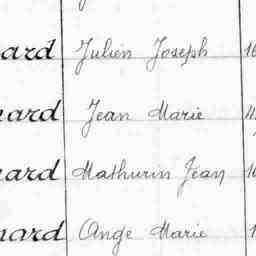 ard Julien Joseph 1
nard Jean Marie
nard Mathurin Jean 1
nard Ange Marie 1